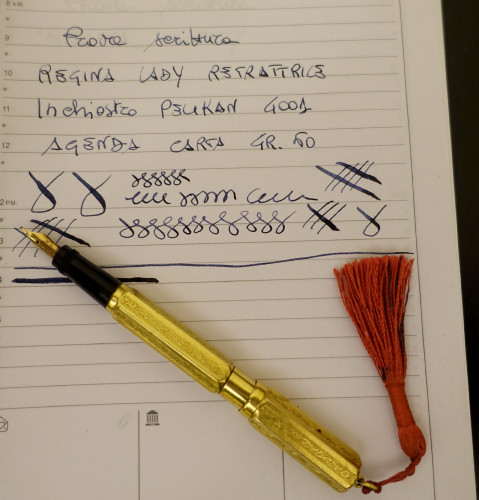 8 AM.
9 Prove scrittura
10 REGINA LADY RETRATTRICE
11 Inchiostro PELIKAN 4001
12 AGENDA CARTA GR. 50
2 PM.
3
4